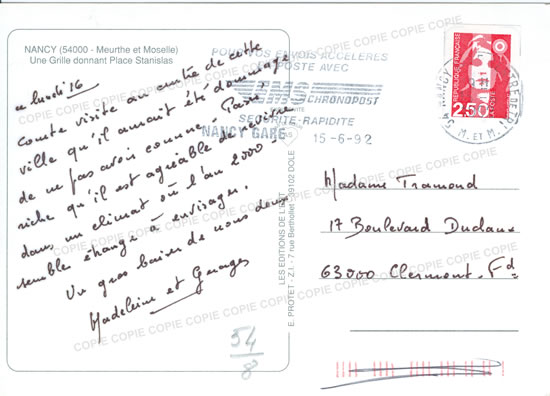 NANCY (54000 - Meurthe et Moselle)
Une Grille donnant Place Stanislas
ce lundi 16
Courte visite au centre de cette
ville qu'il aurait été dommage
de ne pas avoir connue. Passé
riche qu'il est agréable de revivre
dans un climat où l'an 2000
semble étrange à envisager.
Un gros baiser de nous deux.
Madeleine et Georges
54
8
LES EDITIONS DE L'EST
E. PROTET - Z.I. - 7 rue Berthollet - 39102 DOLE
POUR VOS ENVOIS ACCELERES
POSTE AVEC
EMS CHRONOPOST
SECURITE-RAPIDITE
NANCY GARE
15-6-92
54 NANCY
M. ET M.
REPUBLIQUE FRANÇAISE
2,50
LA POSTE
Madame Tramond
17 Boulevard Duclaux
63000 Clermont-Fd
COPIE COPIE COPIE COPIE COPIE COPIE